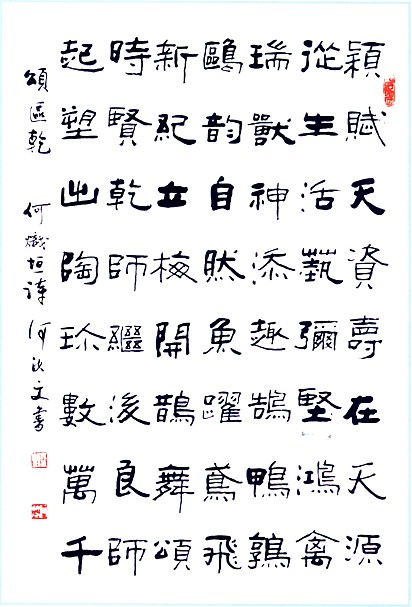 穎賦天資壽在天源
從生活藝彌堅鴻禽
瑞獸神添趣鵠鴨鶉
鷗韵自然魚躍鳶飛
新紀立梅開鵲舞頌
時賢乾師繼後良師
起塑出陶珍數萬千
頌區乾 何熾垣詩 何文書